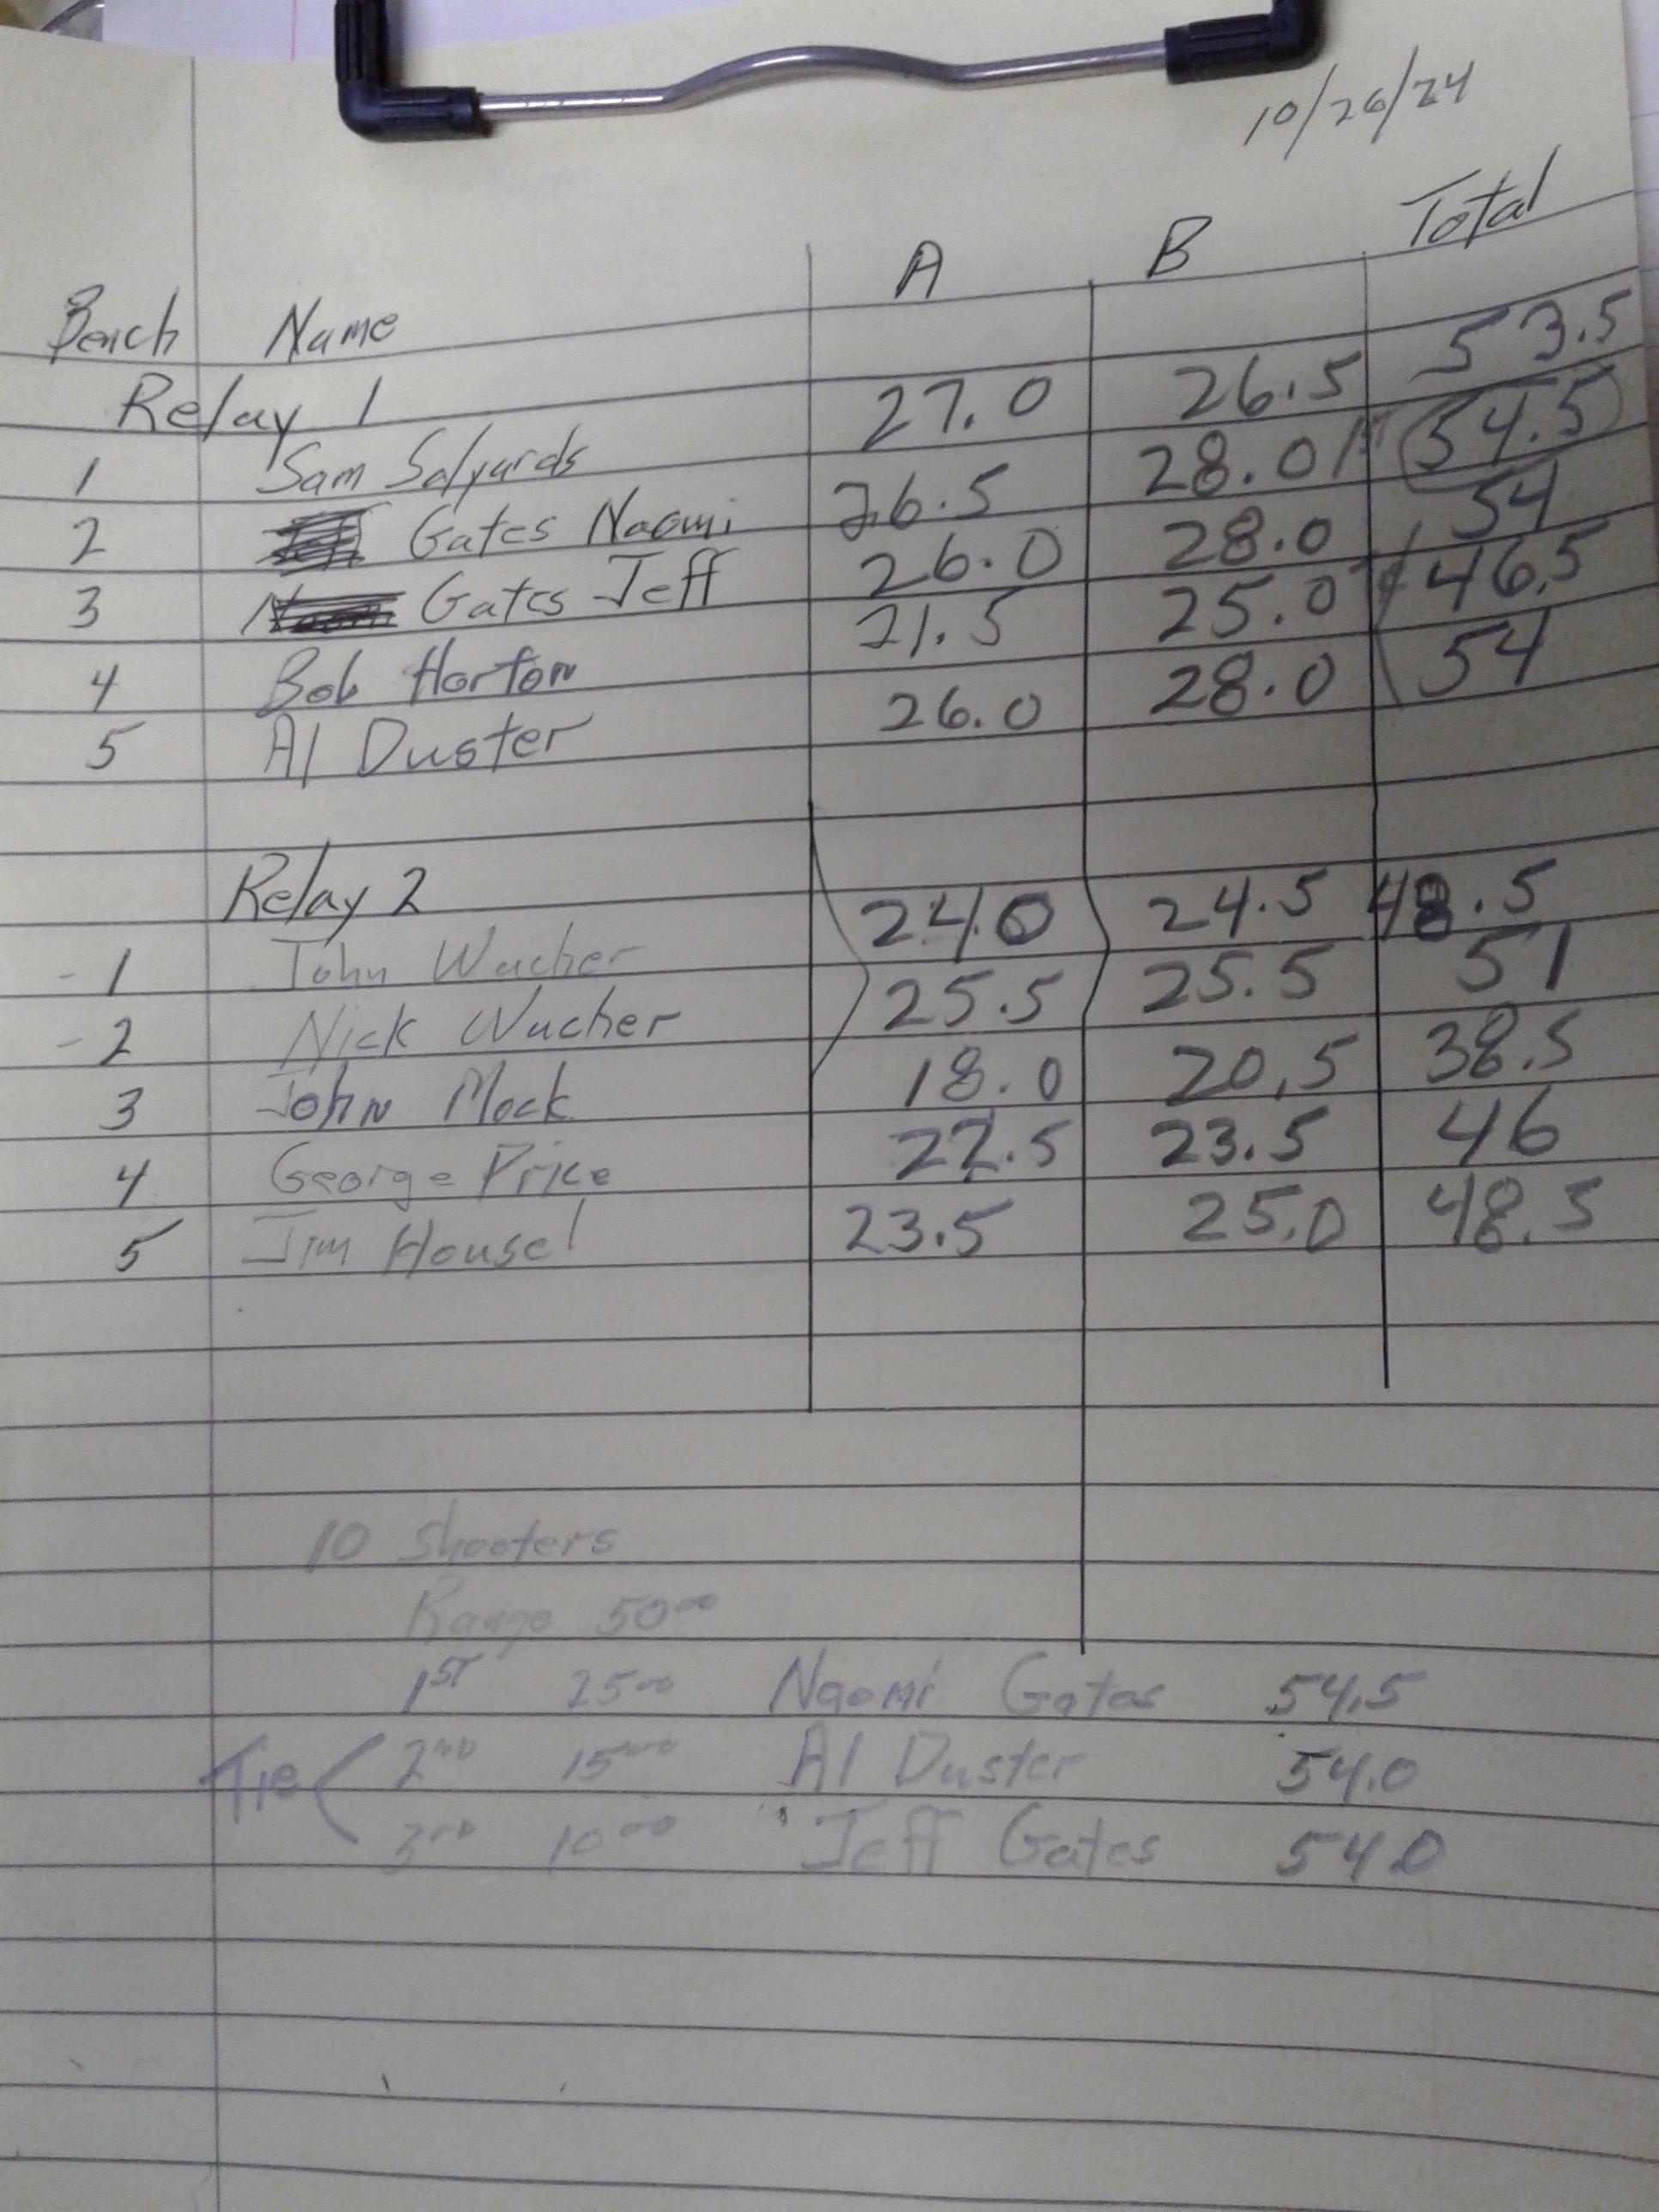 10/26/24
Bench Name A B Total
Relay 1
1 Sam Salyards 27.0 26.5 53.5
2 Gates Naomi 26.5 28.0 1st 54.5
3 Gates Jeff 26.0 28.0 54
4 Bob Horton 21.5 25.0 46.5
5 Al Duster 26.0 28.0 54
Relay 2
-1 John Wucher 24.0 24.5 48.5
-2 Nick Wucher 25.5 25.5 51
3 John Mock 18.0 20.5 38.5
4 George Price 22.5 23.5 46
5 Jim Housel 23.5 25.0 48.5
10 Shooters
Range 50.00
1ST 25.00 Naomi Gates 54.5
Tie 2nd 15.00 Al Duster 54.0
3rd 10.00 Jeff Gates 54.0